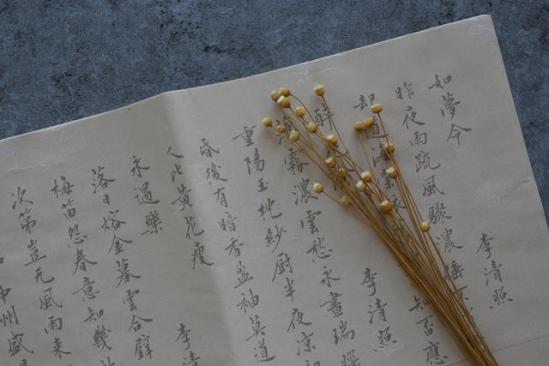 如夢令 李清照
昨夜雨疏風驟濃睡不
却道海棠 知否應
醉 李清照
霧濃雲愁永晝瑞腦
重陽玉枕紗厨半夜凉初
昏後有暗香盈袖莫道
人比黃花瘦
永遇樂 李清
落日熔金暮雲合璧
梅笛怨春意知幾
次第豈无風雨來
中州盛